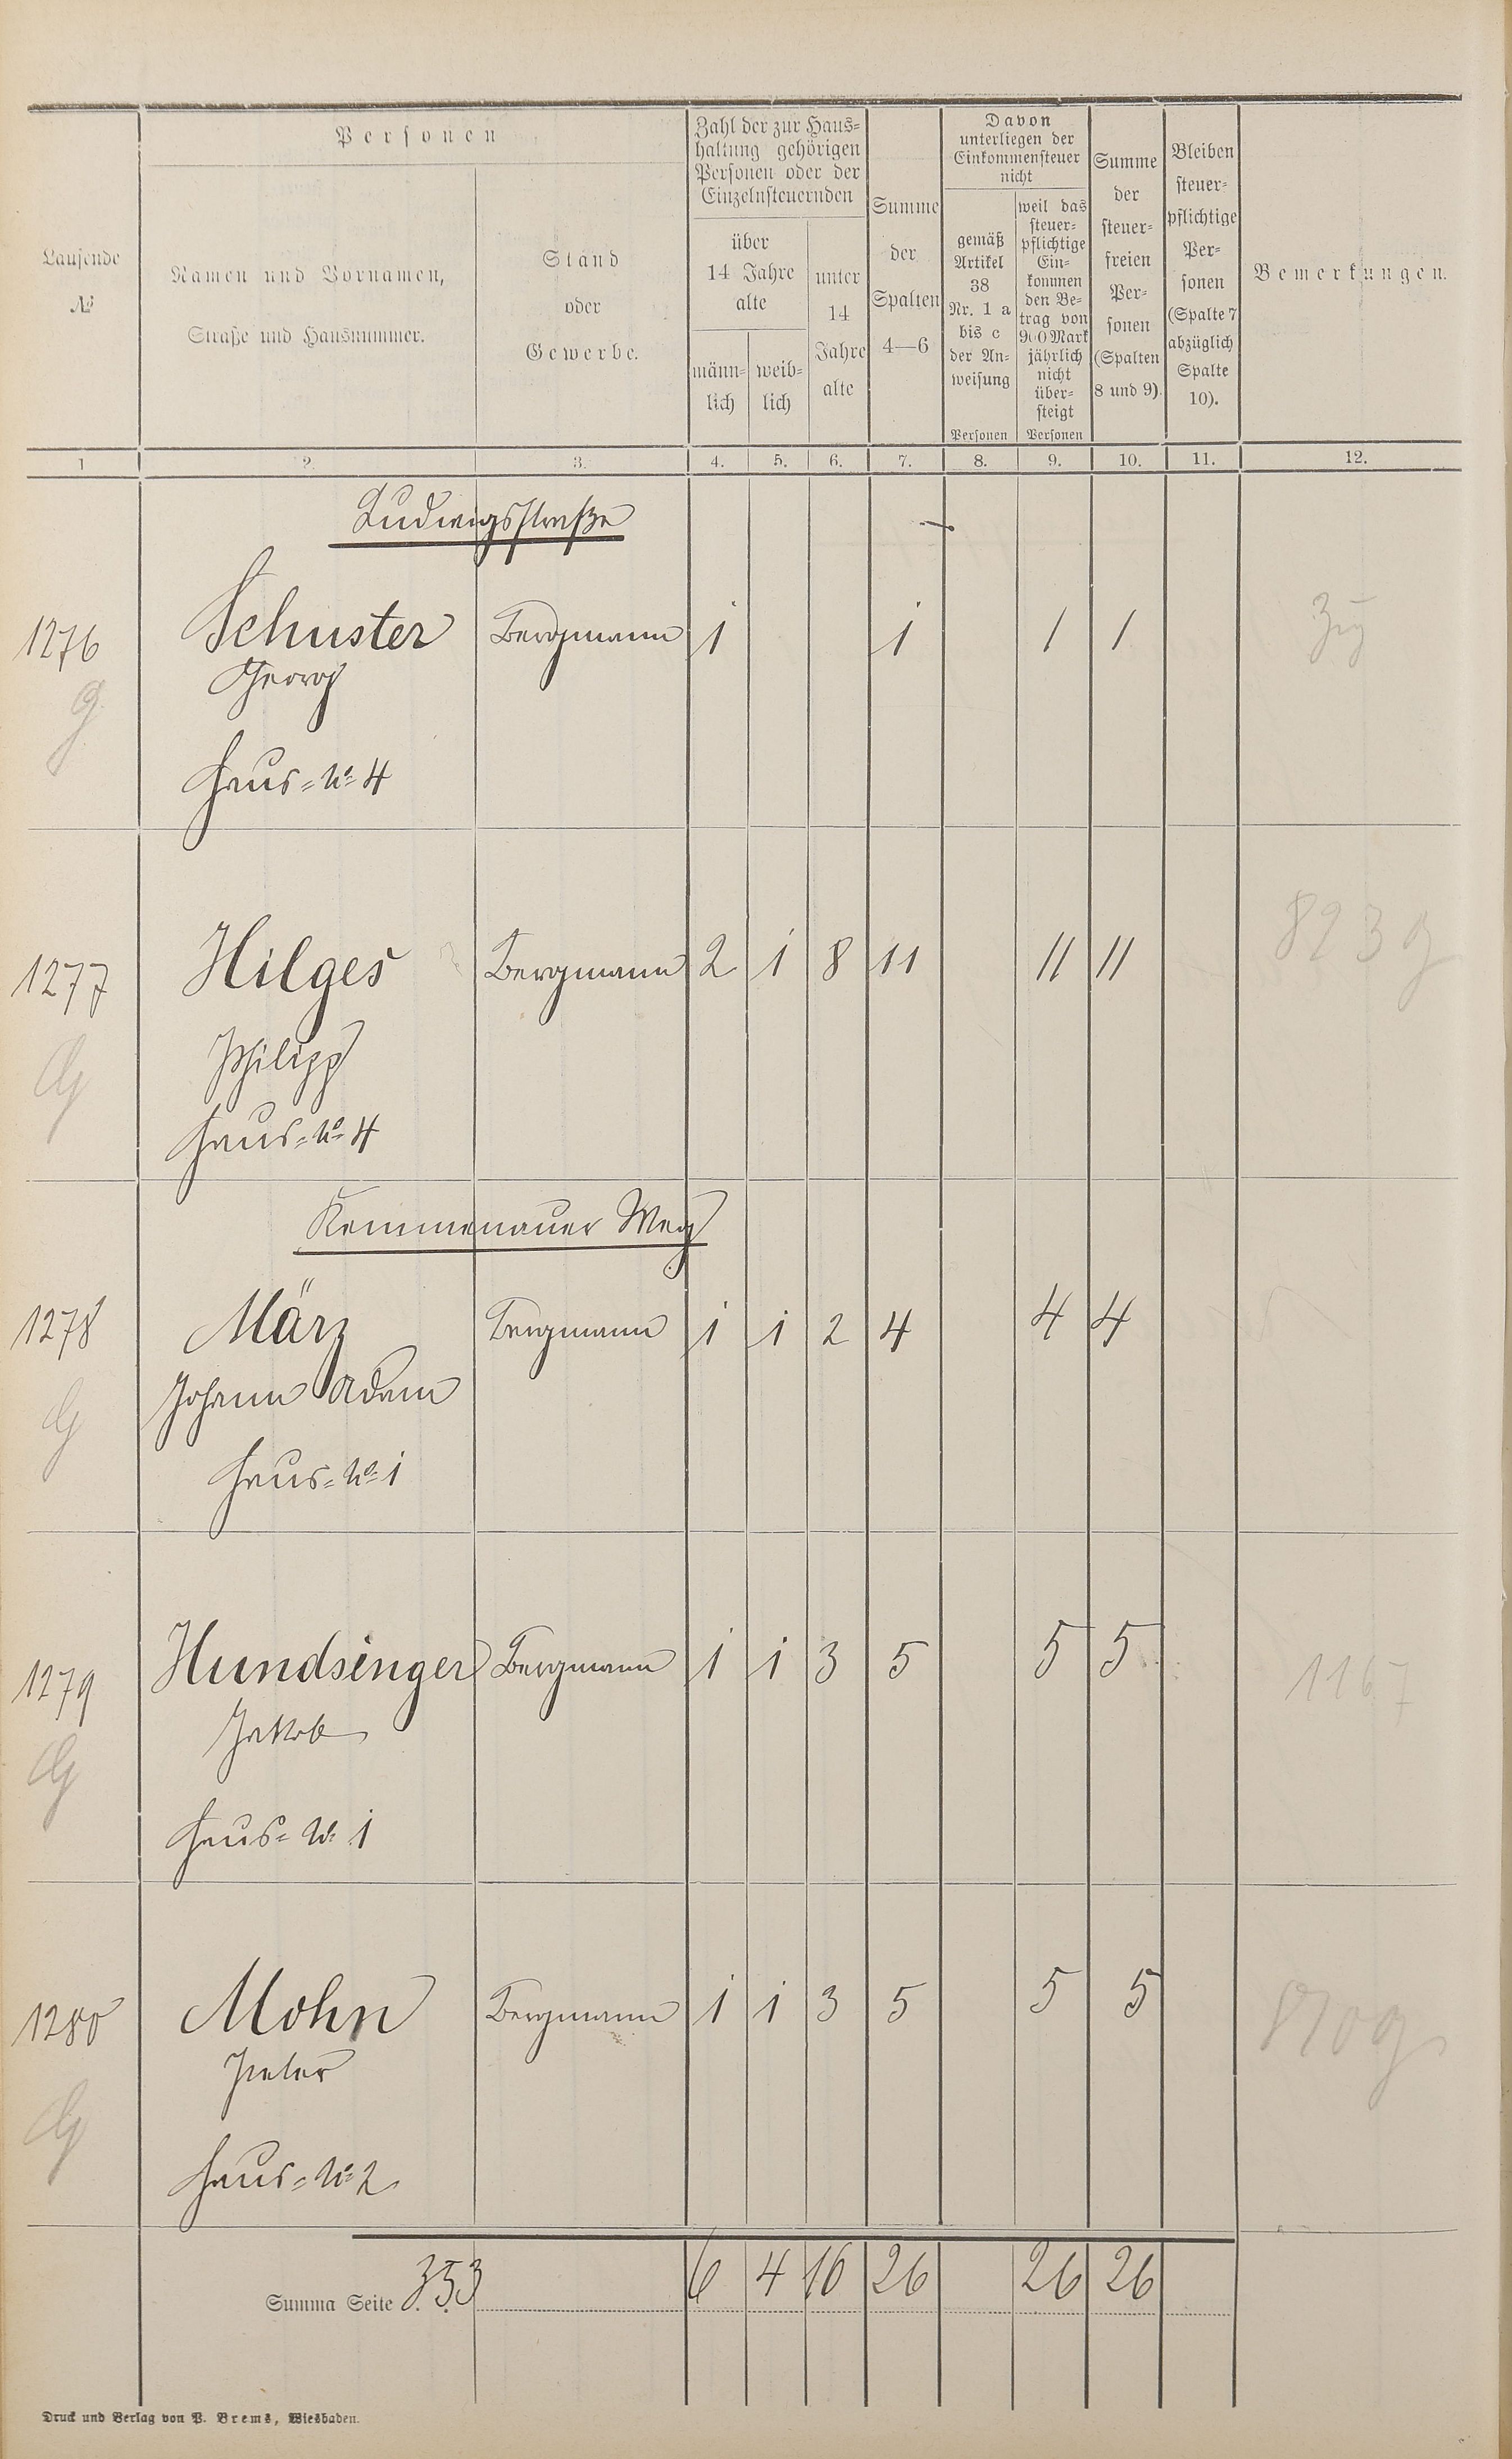 Personen
Laufende
№
Namen und Vornamen,
Straße und Hausnummer.
Stand
oder
Gewerbe.
Zahl der zur Haus-
haltung gehörigen
Personen oder der
Einzelnsteuernden
über
14 Jahre
alte
männ-
lich
weib-
lich
unter
14
Jahre
alte
Summe
der
Spalten
4—6
Davon
unterliegen der
Einkommensteuer
nicht
gemäß
Artikel
38
Nr. 1 a
bis c
der An-
weisung
Personen
weil das
steuer-
pflichtige
Ein-
kommen
den Be-
trag von
900 Mark
jährlich
nicht
über-
steigt
Personen
Summe
der
steuer-
freien
Per-
sonen
(Spalten
8 und 9).
Bleiben
steuer-
pflichtige
Per-
sonen
(Spalte 7
abzüglich
Spalte
10).
Bemerkungen.
1 2. 3. 4. 5. 6. 7. 8. 9. 10. 11. 12.
Ludwigsstraße
1276 Schuster Bergmann 1 1 1 1
g Georg
Haus-No 4
1277 Hilges Bergmann 2 1 8 11 11 11 823 g
Philipp
Haus-No 4
Kemmenauer Weg
1278 März Bergmann 1 1 2 4 4 4
Johann Adam
Haus-No 1
1279 Hundsinger Bergmann 1 1 3 5 5 5 1167
Jakob
Haus-No 1
1280 Mohn Bergmann 1 1 3 5 5 5
Peter
Haus-No 2
Summa Seite 353 6 4 16 26 26 26
Druck und Verlag von P. Brems, Wiesbaden.